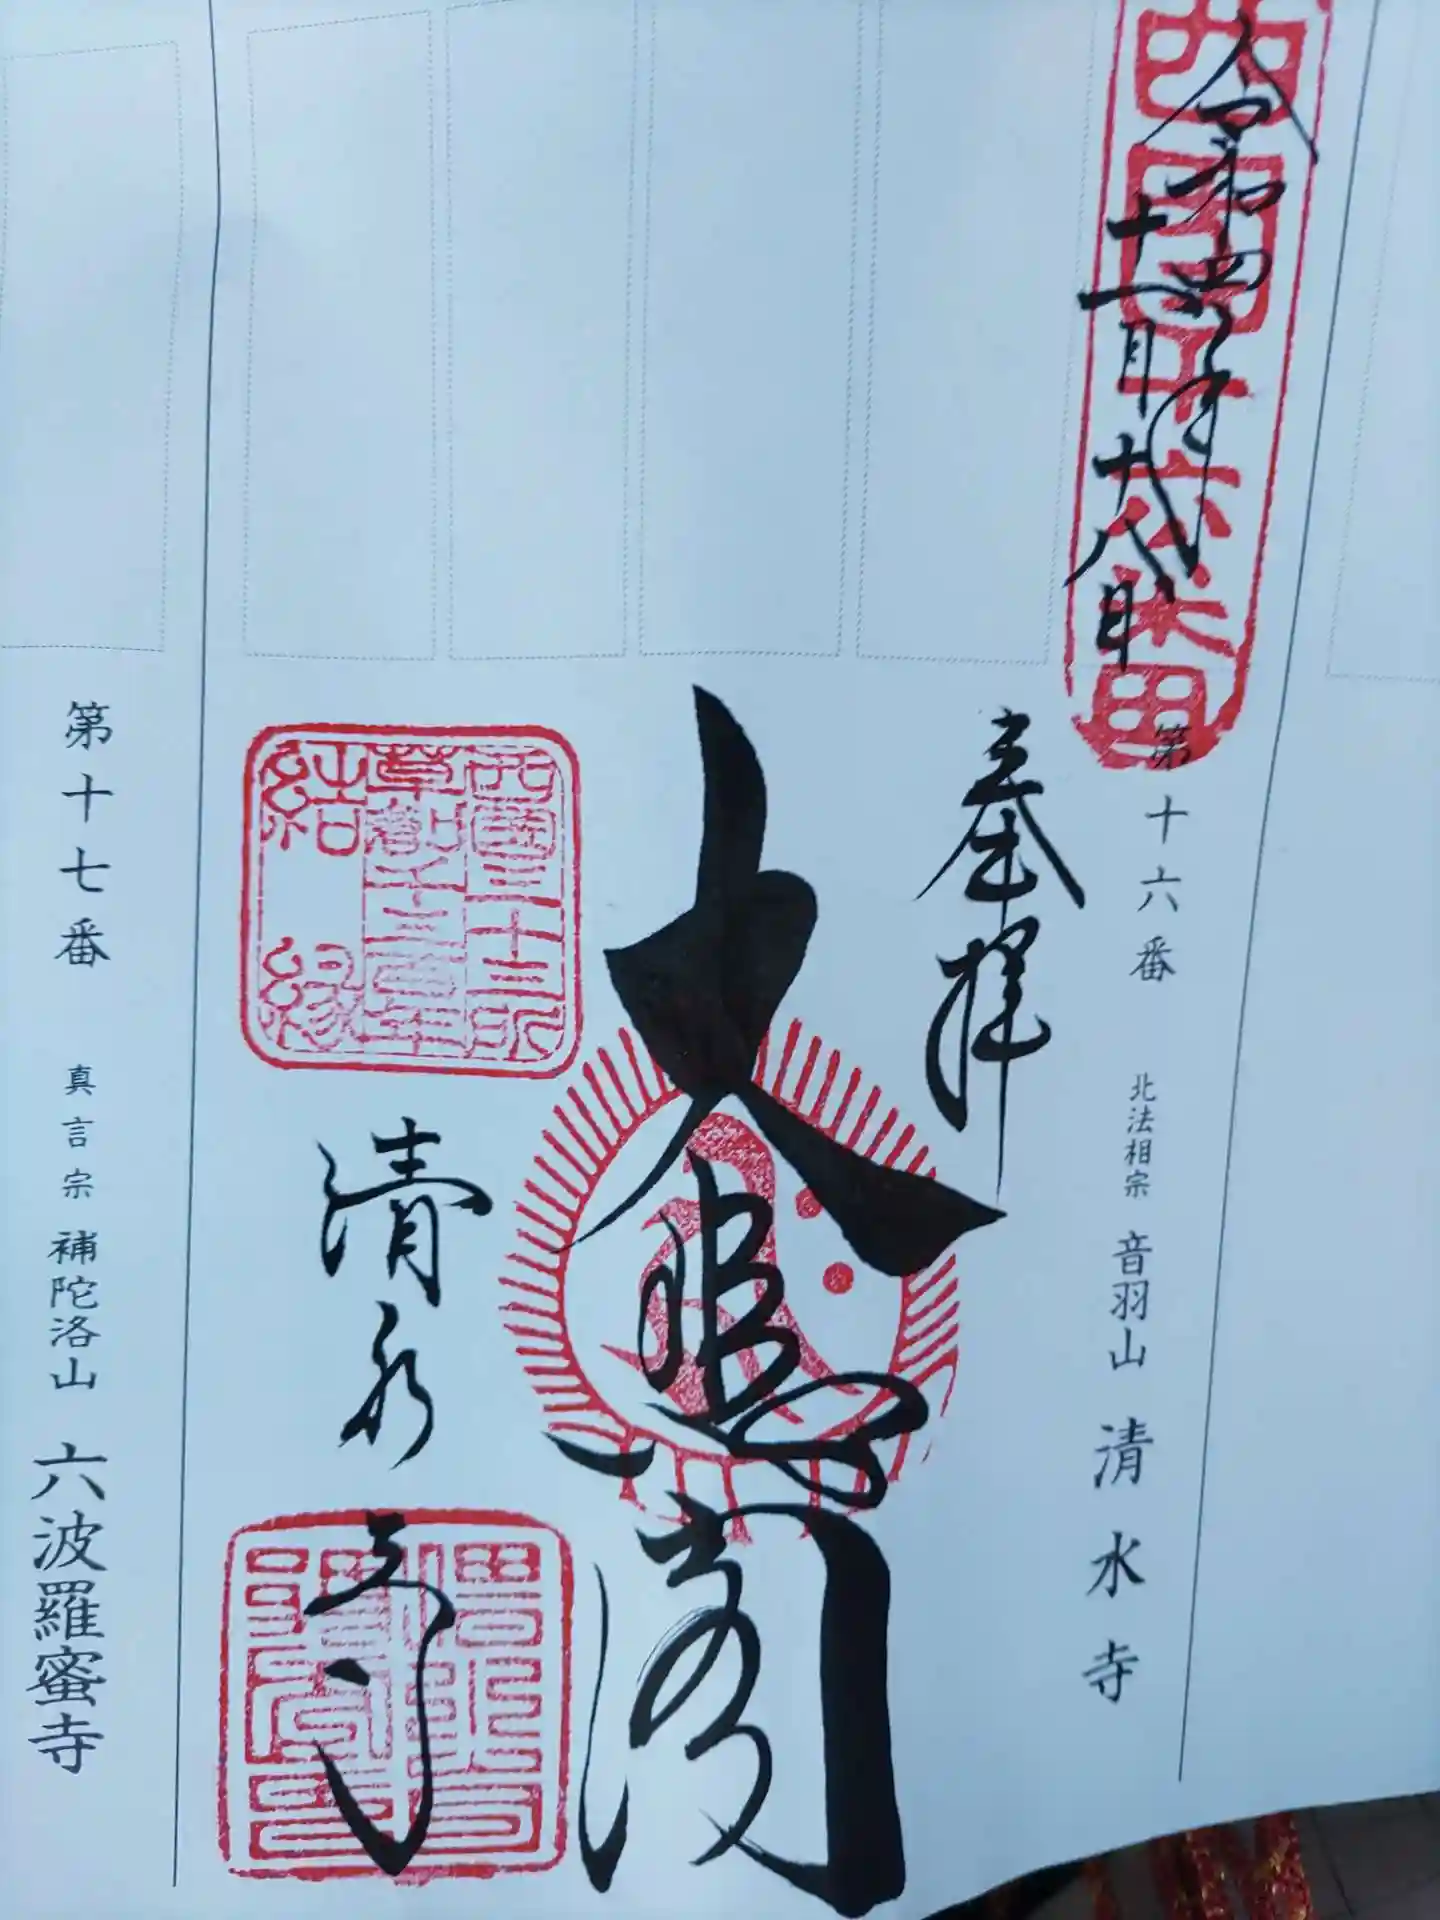 西国十六番
令和四年
十一月十八日
第十六番 北法相宗 音羽山 清水寺
奉拝
大悲閣
西國三十三所
草創千三百年
結縁
清水寺
第十七番 真言宗 補陀洛山 六波羅蜜寺